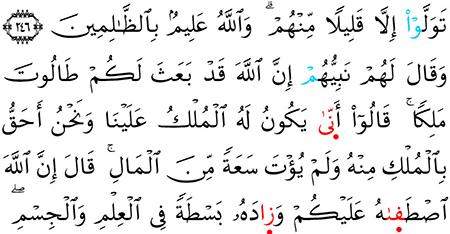 تَوَلَّوۡاْ إِلَّا قَلِيلًا مِّنۡهُمۡۚ وَٱللَّهُ عَلِيمُۢ بِٱلظَّٰلِمِينَ ٢٤٦
وَقَالَ لَهُمۡ نَبِيُّهُمۡ إِنَّ ٱللَّهَ قَدۡ بَعَثَ لَكُمۡ طَالُوتَ
مَلِكًاۚ قَالُوٓاْ أَنَّىٰ يَكُونُ لَهُ ٱلۡمُلۡكُ عَلَيۡنَا وَنَحۡنُ أَحَقُّ
بِٱلۡمُلۡكِ مِنۡهُ وَلَمۡ يُؤۡتَ سَعَةٗ مِّنَ ٱلۡمَالِۚ قَالَ إِنَّ ٱللَّهَ
ٱصۡطَفَىٰهُ عَلَيۡكُمۡ وَزَادَهُۥ بَسۡطَةٗ فِي ٱلۡعِلۡمِ وَٱلۡجِسۡمِۖ